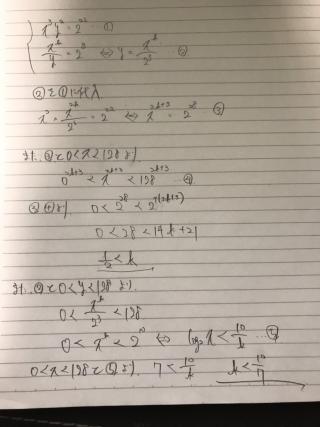 x³y²=2²² ①
x^k/y=2³ ⇔ y=x^k/2³ ②
②を①に代入
x³ x^{2k}/2⁶=2²² ⇔ x^{2k+3}=2²⁸ ③
0<x<128より
0^{2k+3}<x^{2k+3}<128^{2k+3} …④
③④より 0<2²⁸<2^{7(2k+3)}
0<28<14k+21
1/2<k
0<y<128より
0<x^k/2³<128
0<x^k<2¹⁰ ⇔ log₂x<10/k …⑤
0<x<128と⑤より 7<10/k k<10/7